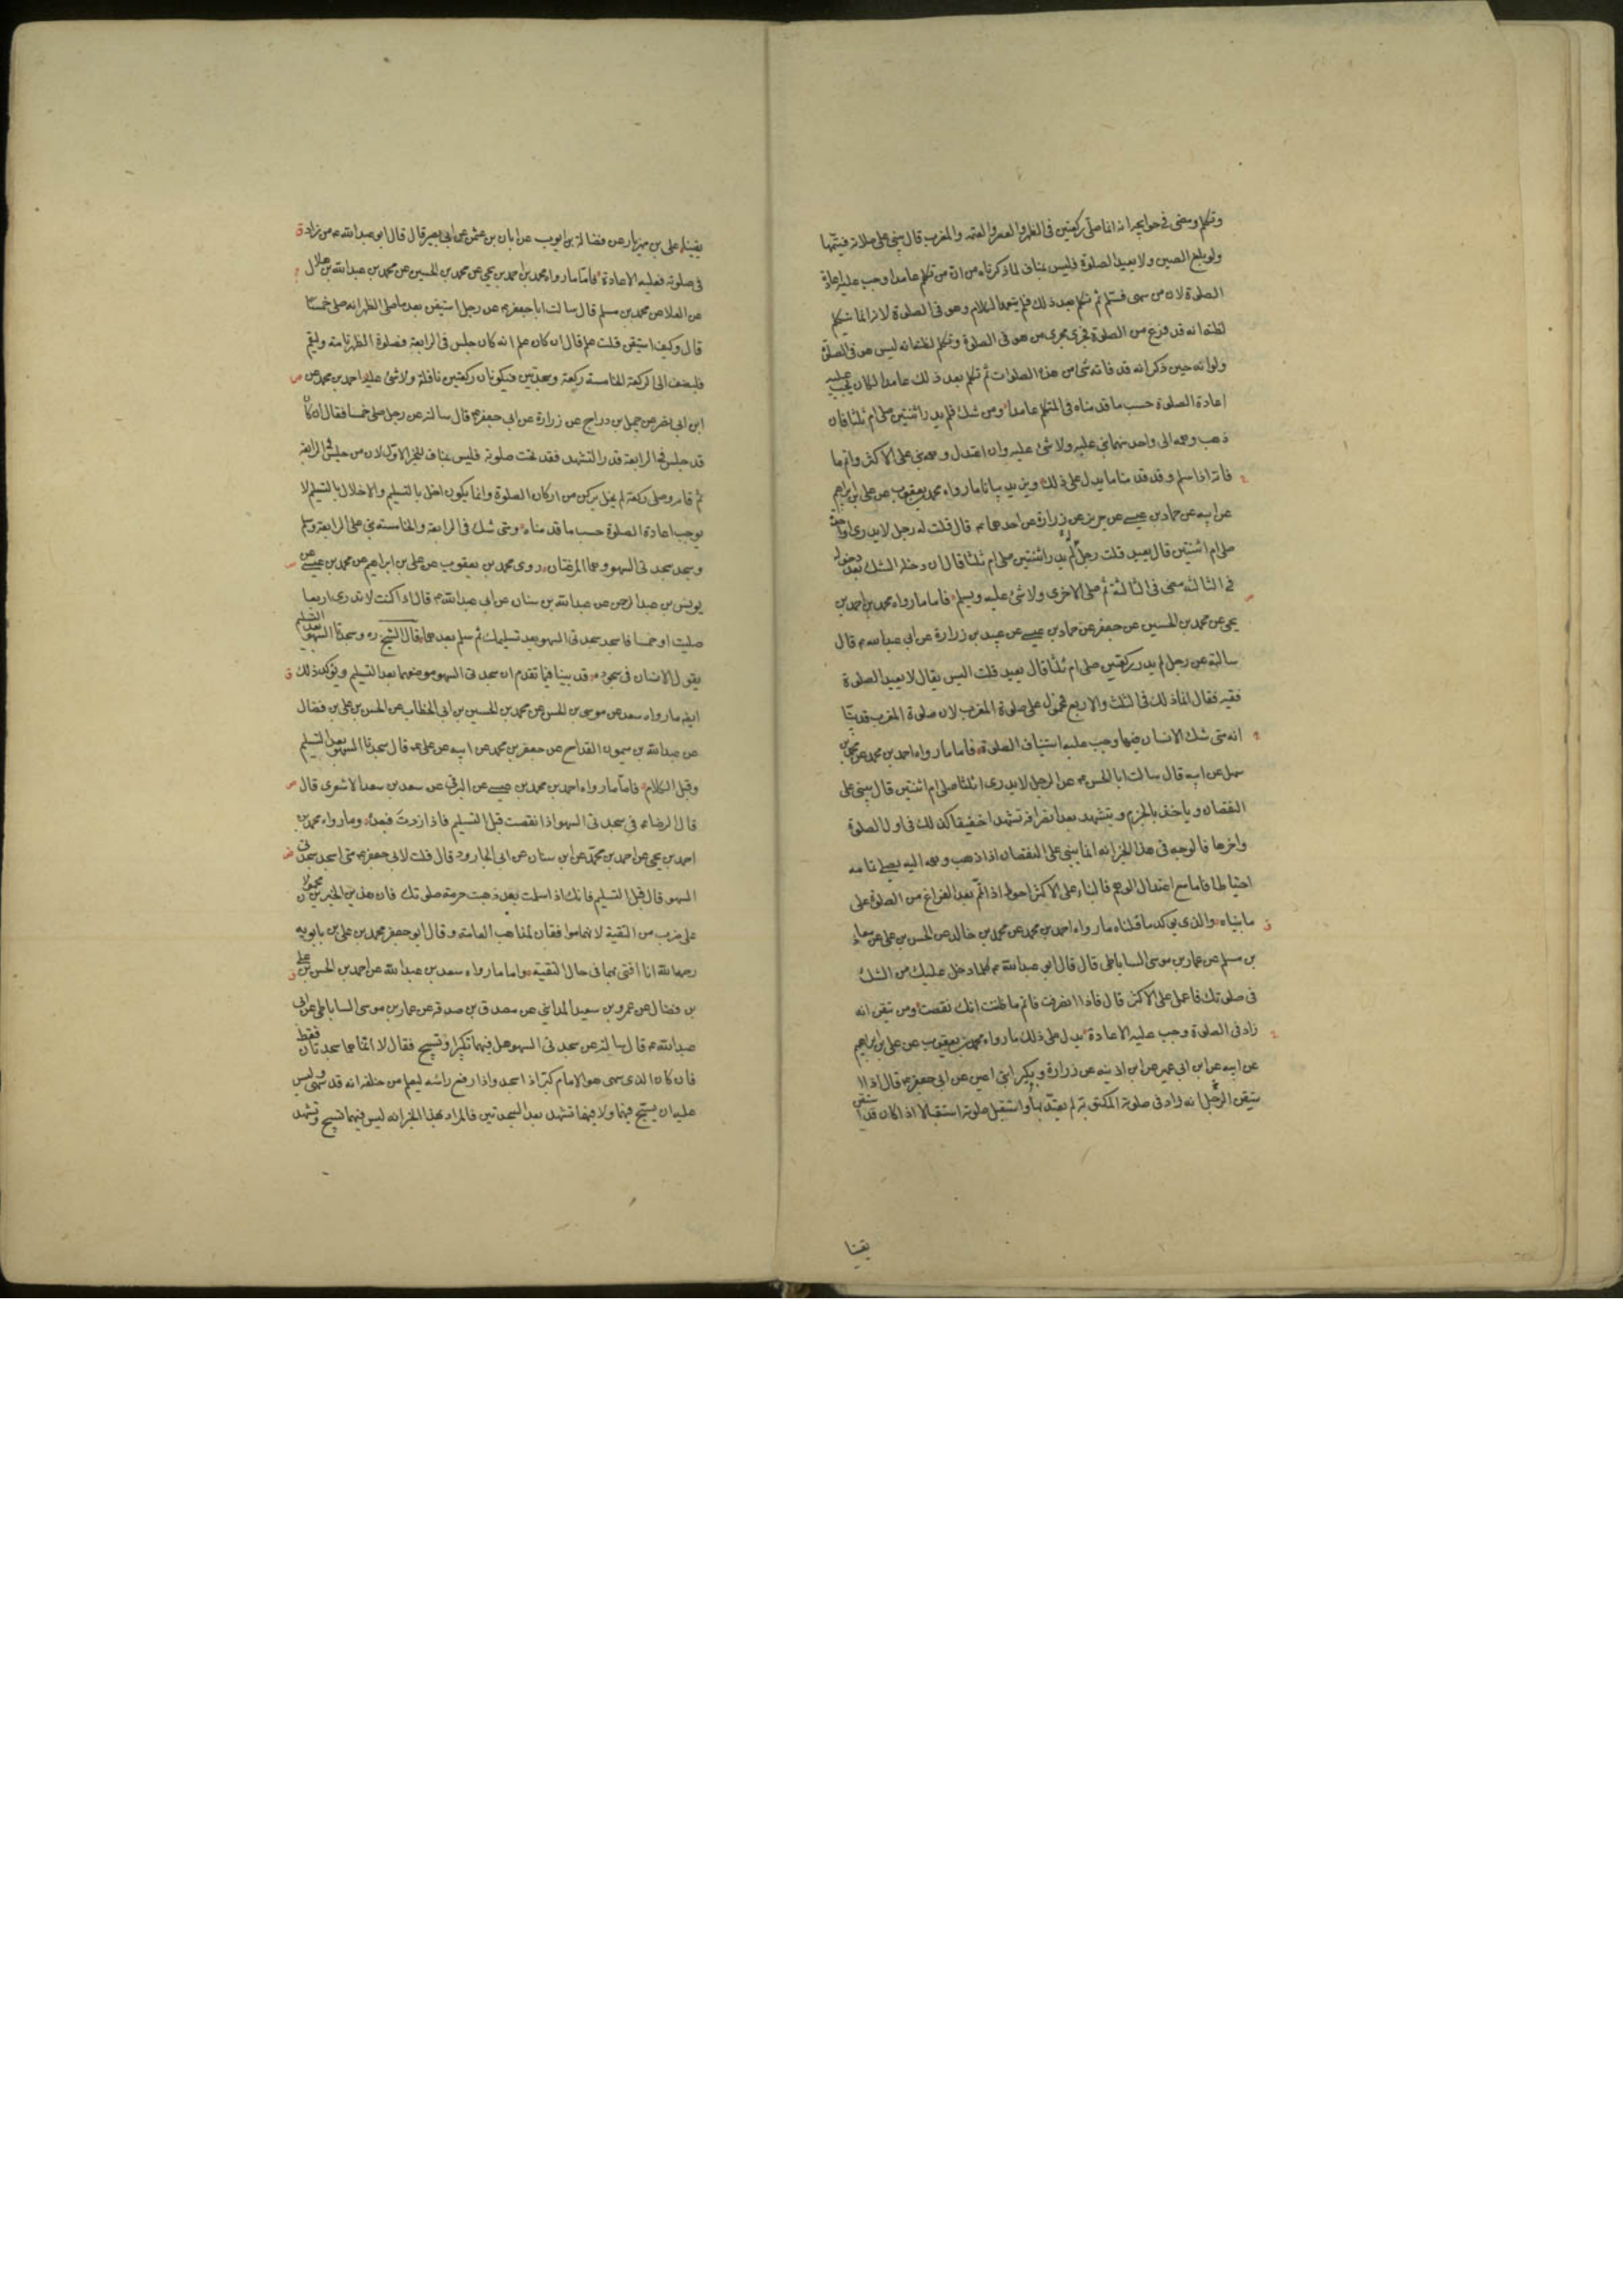 وتكلم ومضى في حوايجه انه انما صلى ركعتين في الظهر والعصر والعتمة والمغرب قال يبني على صلاته فيتمها
ولو بلغ الصين ولا يعيد الصلوة فليس بمناف لما ذكرناه من ان من تكلم عامدا وجب عليه اعادة
الصلوة لان من سهى فسلم ثم تكلم بعد ذلك فلم يتعمد الكلام وهو في الصلوة لانه انما تكلم
لظنه انه قد فرغ من الصلوة فجرى مجرى من هو في الصلوة وتكلم لظنه انه ليس هو في الصلوة
ولو انه حين ذكر انه قد فاته شئ من هذه الصلوات ثم تكلم بعد ذلك عامدا لكان يجب عليه
اعادة الصلوة حسب ما قدمناه في المتكلم عامدا ومن شك فلم يدر اثنتين صلى ام ثلثا فان
ذهب وهمه الى واحد منهما بنى عليه ولا شئ عليه وان اعتدل وهمه بنى على الاكثر واتم ما
فاته اذا سلم وقد قدمنا ما يدل على ذلك ويزيد بيانا ما رواه محمد بن يعقوب عن علي بن ابراهيم
عن ابيه عن حماد بن عيسى عن حريز عن زرارة عن احدهما ع قال قلت له رجل لا يدري اواحدة
صلى ام اثنتين قال يعيد قلت رجل لم يدر اثنتين صلى ام ثلثا قال ان دخله الشك بعد دخوله
في الثالثة مضى في الثالثة ثم صلى الاخرى ولا شئ عليه ويسلم فاما ما رواه محمد بن احمد بن
يحيى عن محمد بن الحسين عن جعفر عن حماد بن عيسى عن عبيد بن زرارة عن ابي عبدالله ع قال
سالته عن رجل لم يدر ركعتين صلى ام ثلثا قال يعيد قلت اليس يقال لا يعيد الصلوة
فقيه فقال انما ذلك في الثلث والاربع محمول على صلوة المغرب لان صلوة المغرب قد بينا
انه متى شك الانسان فيها وجب عليه استيناف الصلوة فاما ما رواه احمد بن محمد عن محمد بن
سهل عن ابيه قال سالت ابا الحسن ع عن الرجل لا يدري اثلثا صلى ام اثنتين قال يبني على
النقصان وياخذ بالجزم ويتشهد بعد انصرافه تشهدا خفيفا كذلك في اول الصلوة
واخرها فالوجه في هذا الخبر انه انما يبني على النقصان اذا ذهب وهمه اليه يصلي تمامه
احتياطا فاما مع اعتدال الوهم فالبناء على الاكثر احوط اذا تمم بعد الفراغ من الصلوة على
ما بيناه والذي يوكد ما قلناه ما رواه احمد بن محمد عن محمد بن خالد عن الحسن بن علي عن معاذ
بن مسلم عن عمار بن موسى الساباطي قال قال ابو عبدالله ع كلما دخل عليك من الشك
في صلوتك فاعمل على الاكثر قال فاذا انصرفت فاتم ما ظننت انك نقصت ومن تيقن انه
زاد في الصلوة وجب عليه الاعادة يدل على ذلك ما رواه محمد بن يعقوب عن علي بن ابراهيم
عن ابيه عن ابن ابي عمير عن ابن اذينه عن زرارة وبكير ابني اعين عن ابي جعفر ع قال اذا ا
ستيقن الرجل انه زاد في صلوته المكتوبة لم يعتد بها واستقبل صلوته استقبالا اذا كان قد استيقن
يقينا
يقينا علي بن مهزيار عن فضالة بن ايوب عن ابان بن عثمن عن ابي بصير قال قال ابو عبدالله ع من زاد
في صلوته فعليه الاعادة فاما ما رواه محمد بن احمد بن يحيى عن محمد بن الحسين عن محمد بن عبدالله بن هلال
عن العلا عن محمد بن مسلم قال سالت ابا جعفر ع عن رجل استيقن بعد ما صلى الظهر انه صلى خمسا
قال وكيف استيقن قلت علم قال ان كان علم انه كان جلس في الرابعة فصلوة الظهر تامة وليقم
فليضف الى الركعة الخامسة ركعة وسجدتين فتكونان ركعتين نافلة ولا شئ عليه احمد بن محمد عن
ابن ابي نصر عن جميل بن دراج عن زرارة عن ابي جعفر ع قال سالته عن رجل صلى خمسا فقال ان كان
قد جلس في الرابعة قدر التشهد فقد تمت صلوته فليس بمناف للخبر الاول لان من جلس في الرابعة
ثم قام وصلى ركعة لم يخل بركن من اركان الصلوة وانما يكون اخل بالتسليم والاخلال بالتسليم لا
يوجب اعادة الصلوة حسب ما قدمناه ومتى شك في الرابعة والخامسة بنى على الرابعة وسلم
وسجد سجدتى السهو وهما المرغمتان روى محمد بن يعقوب عن علي بن ابراهيم عن محمد بن عيسى عن
يونس بن عبدالرحمن عن عبدالله بن سنان عن ابي عبدالله ع قال اذا كنت لا تدري اربعا
صليت او خمسا فاسجد سجدتى السهو بعد تسليمك ثم سلم بعدهما قال الشيخ ره وسجدتا السهو بعد التسليم
يقول الانسان في سجوده قد بينا فيما تقدم ان سجدتى السهو موضعهما بعد التسليم ويؤكد ذلك
ايضا ما رواه سعد عن موسى بن الحسن عن محمد بن الحسين بن ابي الخطاب عن الحسن بن علي بن فضال
عن عبدالله بن ميمون القداح عن جعفر بن محمد عن ابيه عن علي ع قال سجدتا السهو بعد التسليم
وقبل الكلام فاما ما رواه احمد بن محمد بن عيسى عن البرقي عن سعد بن سعد الاشعري قال
قال الرضا ع في سجدتى السهو اذا نقصت قبل التسليم فاذا زدت فبعده وما رواه محمد بن
احمد بن يحيى عن احمد بن محمد عن ابن سنان عن ابي الجارود قال قلت لابي جعفر ع متى اسجد سجدتى
السهو قال قبل التسليم فانك اذا سلمت بعد ذهبت حرمة صلوتك فان هذين الخبرين محمولان
على ضرب من التقية لانهما موافقان لمذاهب العامة وقال ابو جعفر محمد بن علي بن بابويه
رحمه الله انا افتي بهما في حال التقية واما ما رواه سعد بن عبدالله عن احمد بن الحسن بن علي
بن فضال عن عمرو بن سعيد المدايني عن مصدق بن صدقه عن عمار بن موسى الساباطي عن ابي
عبدالله ع قال سالته عن سجدتى السهو هل فيهما تكبير او تسبيح فقال لا انما هما سجدتان فقط
فان كان الذي سهى هو الامام كبر اذا سجد واذا رفع راسه ليعلم من خلفه انه قد سهى وليس
عليه ان يسبح فيهما ولا فيهما تشهد بعد السجدتين فالمراد بهذا الخبر انه ليس فيهما تسبيح وتشهد